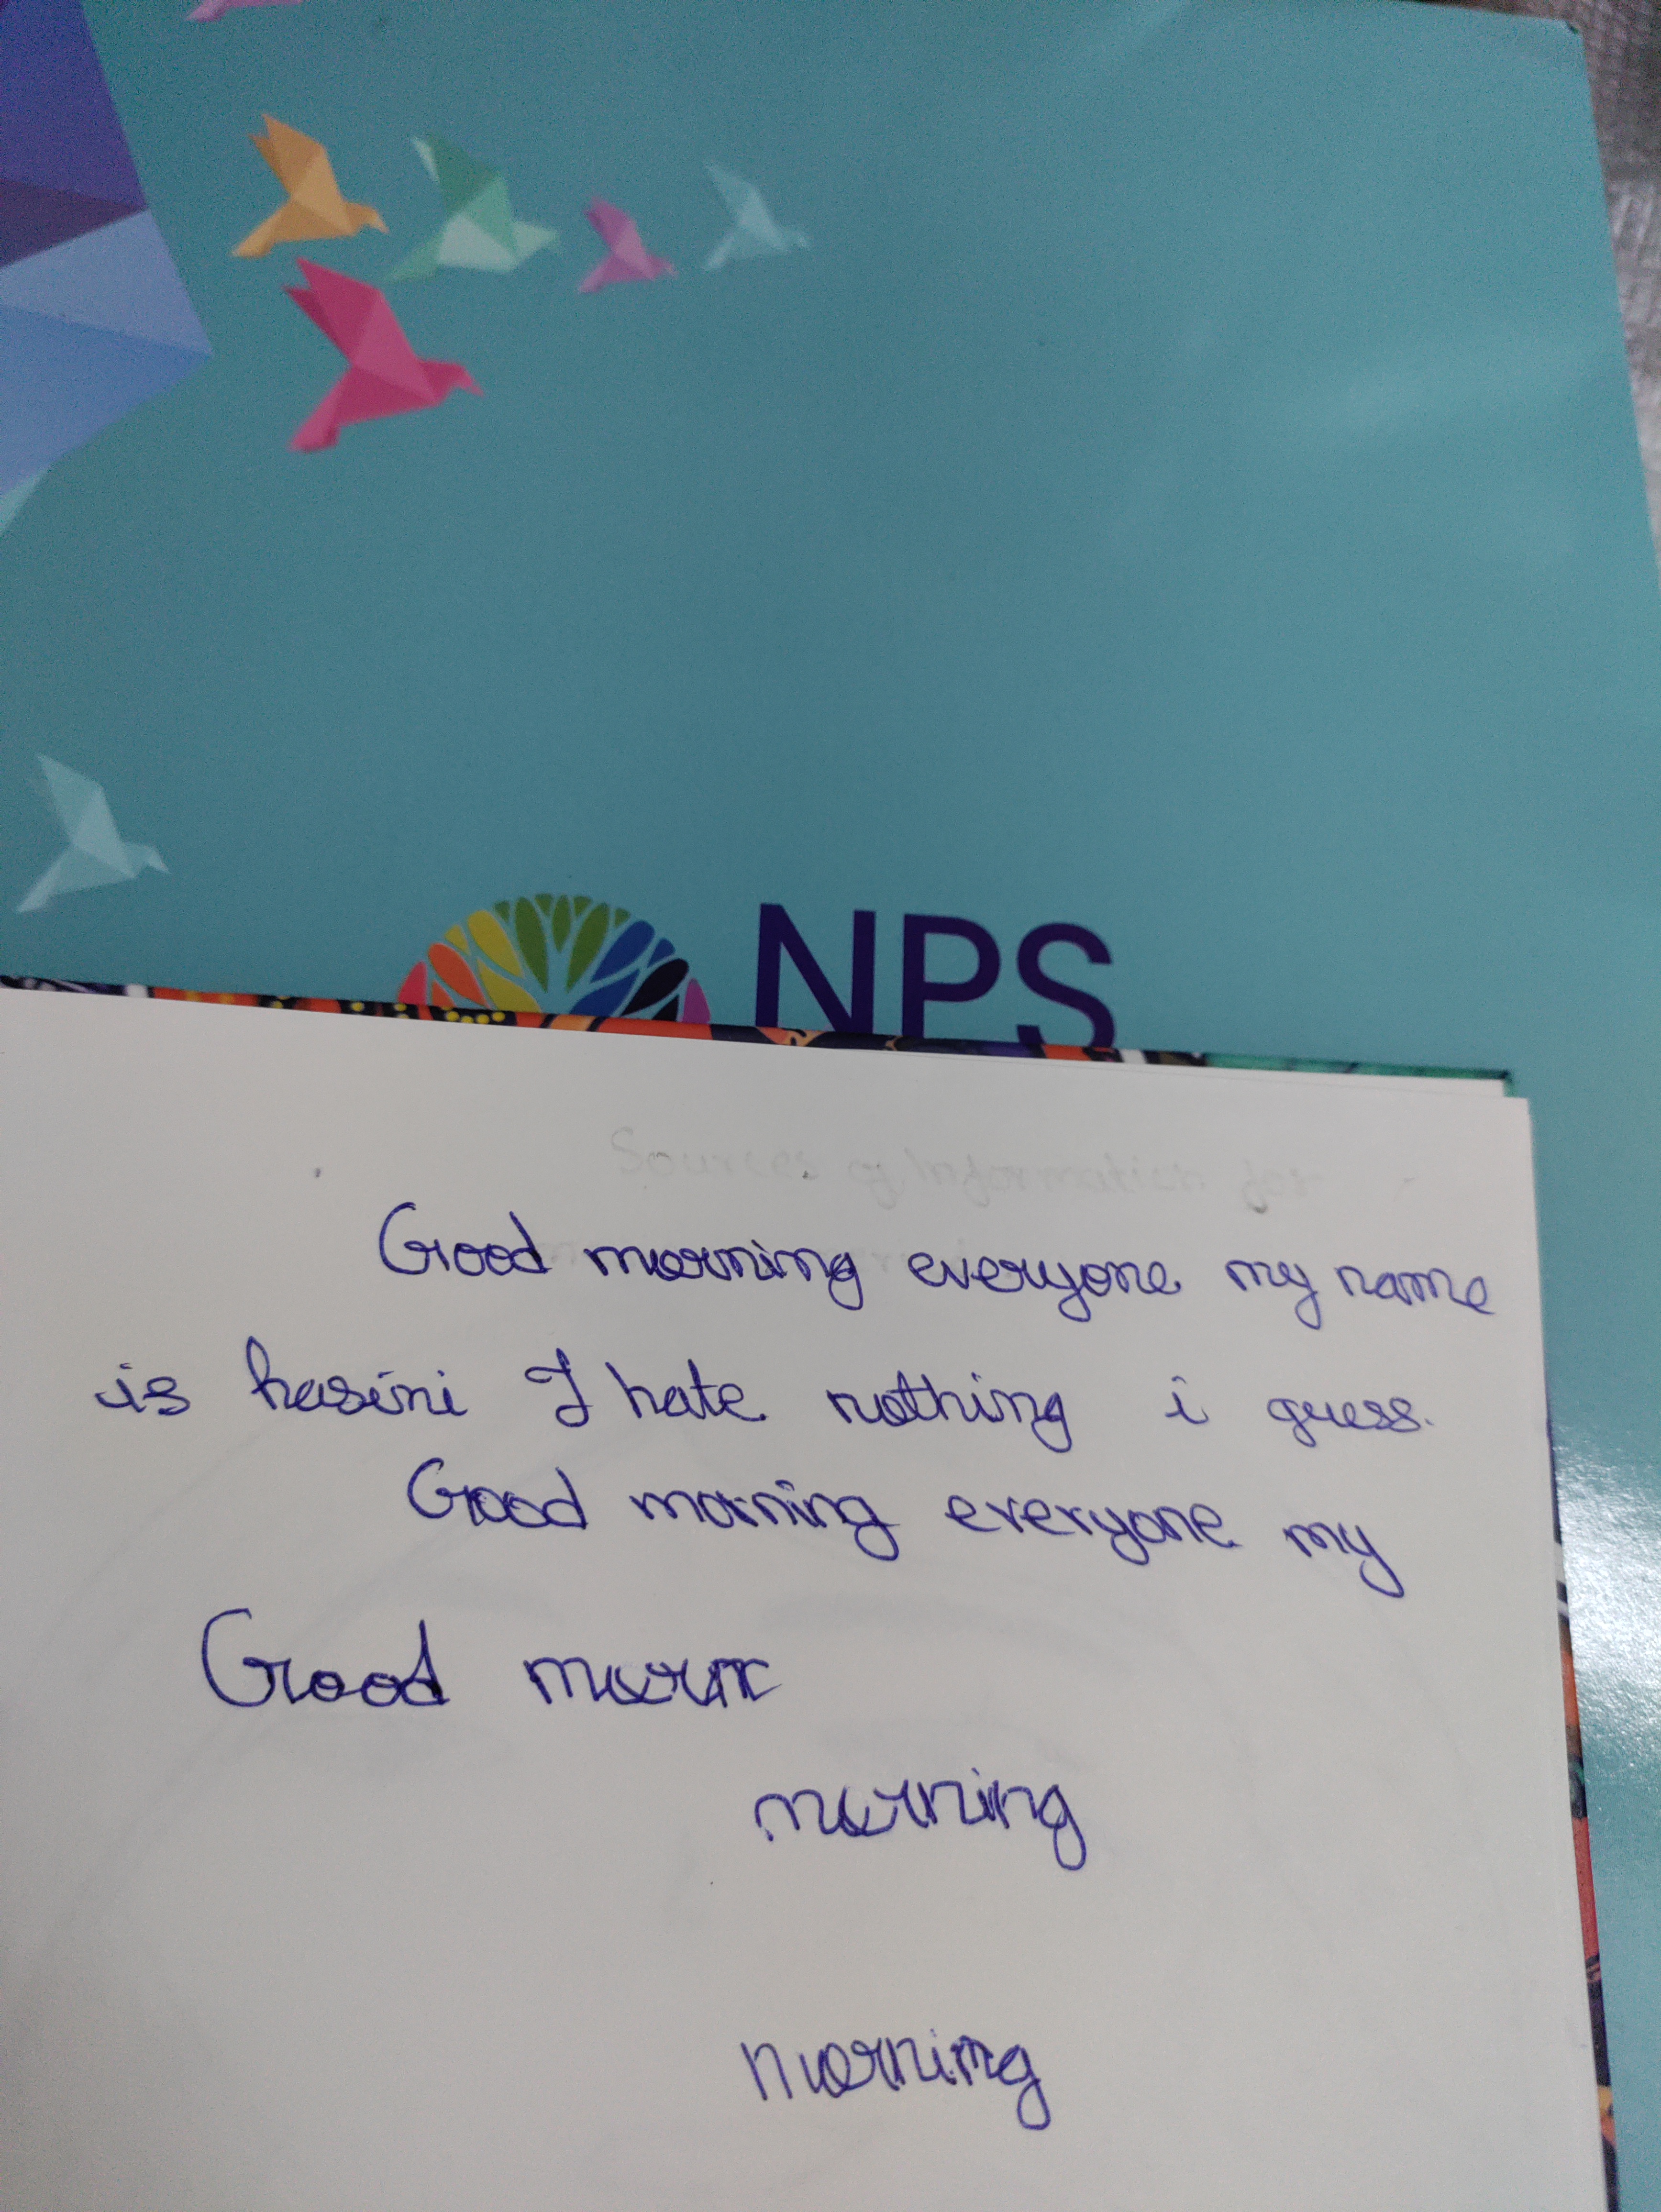 NPS
Sources of Information for
Good morning everyone my name
is hasini I hate nothing i guess.
Good morning everyone my
Good
morning
morning